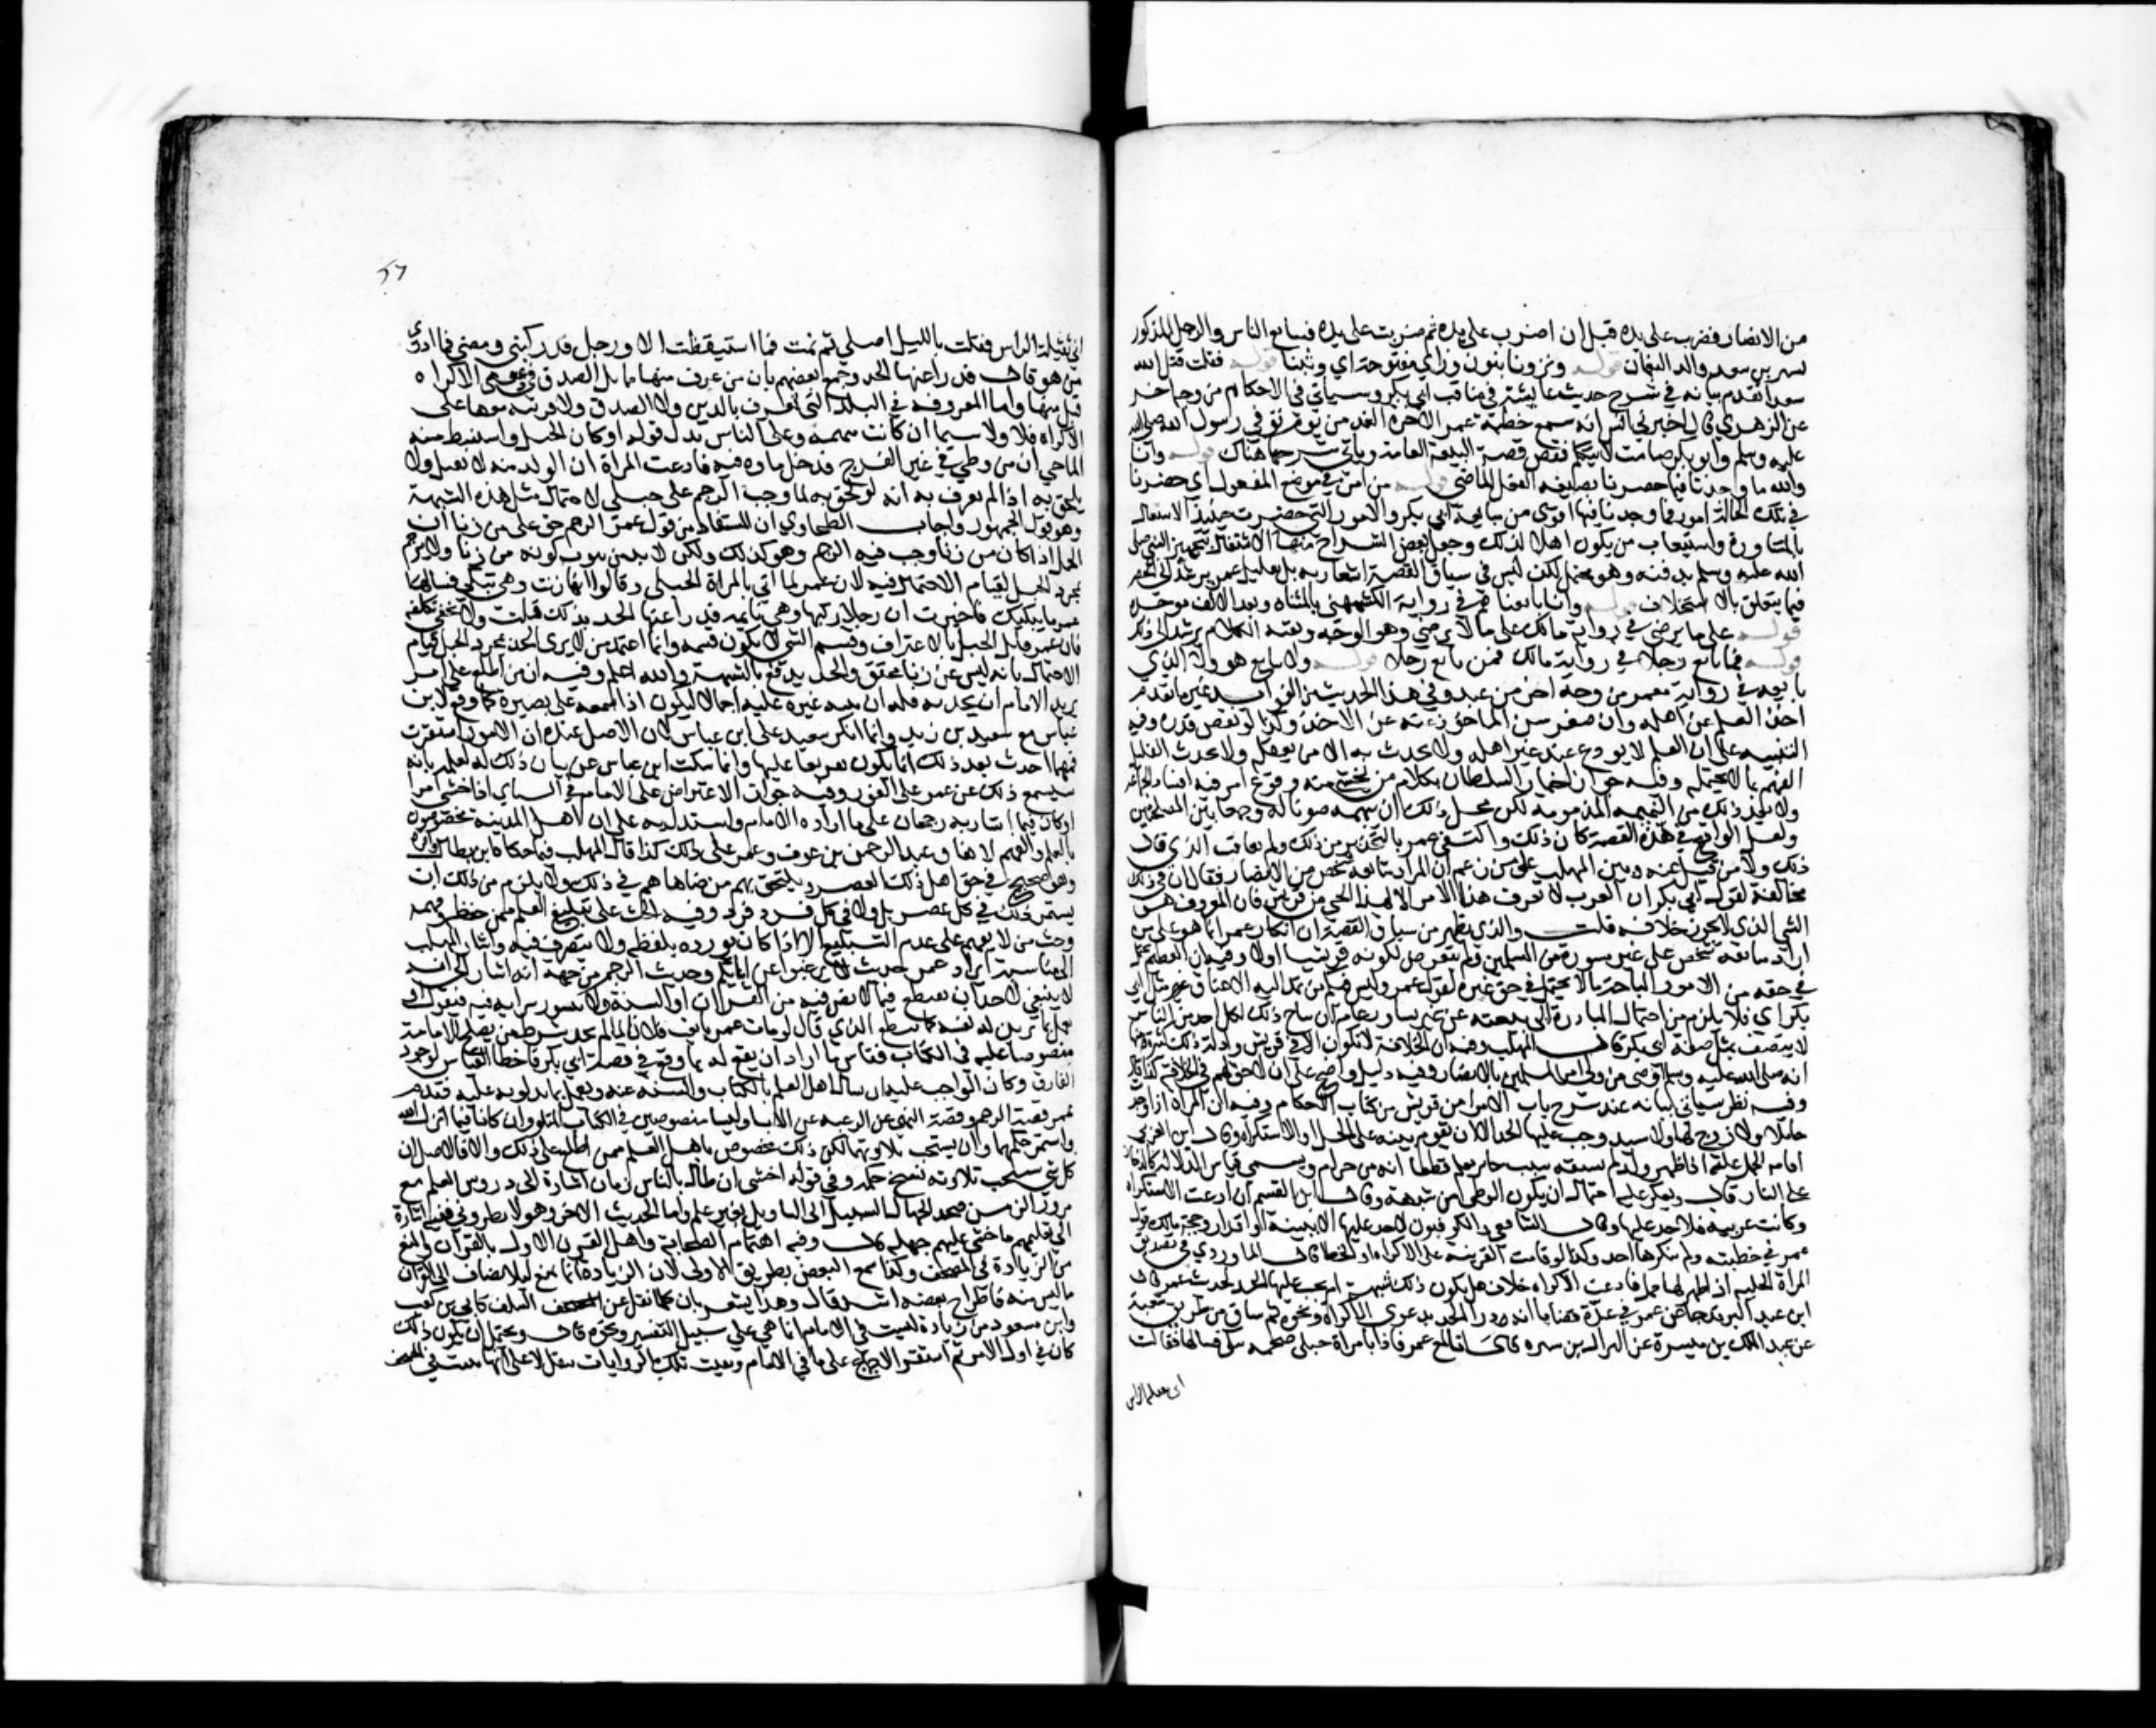 من الانصار فضرب على يده قبل ان اضرب على يده ثم ضربت على يده فبايع الناس والرجل المذكور
بشير بن سعد والد النعمان قوله ونزونا بنون وزاي مفتوحة اي وثبنا قوله فقلت قتل الله
سعدا تقدم بيانه في شرح حديث عايشة في مناقب ابي بكر وسياتي في الاحكام من وجه اخر
عن الزهري قال اخبرني انس انه سمع خطبة عمر الاخرة الغد من يوم توفي رسول الله صلى الله
عليه وسلم وابو بكر صامت لا يتكلم فقص قصة البيعة العامة وياتي شرحها هناك قوله وانا
والله ما وجدنا فيما حضرنا بصيغة الفعل الماضي قوله من امر في موضع المفعول اي حضرنا
في تلك الحالة امور فما وجدنا فيها اقوى من مبايعة ابي بكر والامور التي حضرت حينئذ الاشتغال
بالمشاورة واستيعاب من يكون اهلا لذلك وجعل بعض الشراح منها الاشتغال بتجهيز النبي صلى
الله عليه وسلم بدفنه وهو محتمل لكن ليس في سياق القصة اشعار به بل تعليل عمر يرشد الى الحصر
فيما يتعلق بالاستخلاف قوله واما بايعنا هم في رواية الكشميهني بالمثناه وبعد الالف موحدة
قوله على ما يرضى في رواية مالك على ما لا يرضي وهو الوجه وبقية الكلام يرشد الى ذلك
قوله فمن بايع رجلا في رواية مالك فمن بايع رجلا قوله ولا يبايع هو ولا الذي
بايعه في رواية معمر من وجه اخر من عبد وفي هذا الحديث من الفوايد غير ما تقدم
اخذ العلم عن اهله وان صغر سن الماخوذ عنه عن الاخذ وكذا لو نقص قدره وفيه
التنبيه على ان العلم لا يودع عند غير اهله ولا يحدث به الا من يعقله ولا يحدث القليل
الفهم بما لا يحتمله وفيه جواز اخبار السلطان بكلام من يخشى منه وقوع امر فيه افساد للجماعة
ولا يعد ذلك من النميمة المذمومة لكن محل ذلك ان يبهمه صونا له وجمعا بين المصلحتين
ولعل الواقع في هذه القصة كان ذلك واكتفى عمر بالتحذير من ذلك ولم يعاقب الذي قال
ذلك ولا من قيل عنه وبنى المهلب على من زعم ان المراد مبايعة شخص من الانصار فقال ان في ذلك
مخالفة لقول ابي بكر ان العرب لا تعرف هذا الامر الا لهذا الحي من قريش فان المعروف هو
الشي الذي لا يجوز خلافه قلت والذي يظهر من سياق القصة ان انكار عمر انما هو على من
اراد مبايعة شخص على غير مشورة من المسلمين ولم يتعرض لكونه قرشيا اولا وفيه ان العظيم يحتمل
في حقه من الامور المباحة ما لا يحتمل في حق غيره لقول عمر وليس فيكم من تمد اليه الاعناق مثل ابي
بكر اي فلا يلزم من احتمال المبادرة الى بيعته عن غير تشاور عام ان يباح ذلك لكل احد من الناس
لا يتصف بمثل صفة ابي بكر قال المهلب وفيه ان الخلافة لا تكون الا في قريش وادلة ذلك كثيرة منها
انه صلى الله عليه وسلم اوصى من ولي امر المسلمين بالانصار وفيه دليل واضح على ان لا حق لهم في الخلافة كذا قال
وفيه نظر سياتي بيانه عند شرح باب الامرا من قريش من كتاب الاحكام وفيه ان المراة اذا وجدت
حاملا ولا زوج لها ولا سيد وجب عليها الحد الا ان تقيم بينة على الحمل او الاستكراه وقال ابن العربي
اقامة الحمل عليها اذا ظهر ولد لم يسبقه سبب جايز يعلم قطعا انه من حرام ويسمى قياس الدلالة كالدخان
على النار قال ويعكر عليه احتمال ان يكون الوطي من شبهة وقال ابن القسم ان ادعت الاستكراه
وكانت غريبة فلا حد عليها وقال الشافعي والكوفيون لا حد عليها الا ببينة او اقرار وحجة مالك قول
عمر في خطبته ولم ينكرها احد وكذا لو قامت القرينة على الاكراه او الخطا قال الماوردي في تصديق
المراة الخلية اذا ظهر لها حمل فادعت الاكراه خلاف هل يكون ذلك شبهة ام يجب عليها الحد لحديث عمر قال
ابن عبد البر قد جا عن عمر في عدة قضايا انه درا الحد بدعوى الاكراه ونحوه ثم ساق من طريق شعبة
عن عبد الملك بن ميسرة عن النزال بن سبره قال انا لمع عمر فاذا بامراة حبلى ضخمه تبكي فسالها فقالت
اني ثقيلة الراس
اني ثقيلة الراس فقمت بالليل اصلي ثم نمت فما استيقظت الا ورجل قد ركبني ومضى فما ادري
من هو قال فدرا عنها الحد وجمع بعضهم بان من عرف منها مخايل الصدق في دعوى الاكراه
قبل منها واما المعروفة في البلد التي لا تعرف بالدين ولا الصدق ولا قرينة معها على
الاكراه فلا ولا سيما ان كانت متهمة وعلى الثاني يدل قوله او كان الحبل واستنبط منه
الباجي ان من وطي في غير الفرج فدخل ماوه فيه فادعت المراة ان الولد منه لا يقبل ولا
يلحق به اذا لم يعترف به لانه لو لحق به لما وجب الرجم على حبلى لاحتمال مثل هذه الشبهة
وهو قول الجمهور واجاب الطحاوي ان المستفاد من قول عمر الرجم حق على من زنا ان
الحبل اذا كان من زنا وجب فيه الرجم وهو كذلك ولكن لا بد من ثبوت كونه من زنا ولا يرجم
بمجرد الحبل لقيام الاحتمال فيه لان عمر لما اتي بالمراة الحبلى وقالوا انها زنت وهي تبكي فسالها
عمر ما يبكيك فاخبرت ان رجلا ركبها وهي نايمة فدرا عنها الحد بذلك قلت ولا يخفى تكلفه
فان عمر قابل الحبل بالاعتراف وقسيم الشي لا يكون قسمه وانما اعتمد من لا يرى الحد بمجرد الحبل قيام
الاحتمال بانه ليس عن زنا محقق والحد يدفع بالشبهة والله اعلم وفيه ان من اطلع على امر
يريد الامام ان يحدثه فله ان ينبه غيره عليه اجمالا ليكون اذا سمعه على بصيرة كما وقع لابن
عباس مع سعيد بن زيد وانما انكر سعيد على ابن عباس لان الاصل عنده ان الامور استقرت
فمهما احدث بعد ذلك انما يكون تفريعا عليها وانما سكت ابن عباس عن بيان ذلك له لعلمه بانه
سيسمع ذلك عن عمر على الفور وفيه جواز الاعتراض على الامام في الراي اذا خشي امرا
وكان فيما اشار به رجحان على ما اراده الامام واستدل به على ان اهل المدينة مخصوصون
بالعلم والفهم لاتفاق عبد الرحمن بن عوف وعمر على ذلك كذا قال المهلب فيما حكاه ابن بطال واقره
وهو صحيح في حق اهل ذلك العصر ويلتحق بهم من ضاهاهم في ذلك ولا يلزم من ذلك ان
يستمر ذلك في كل عصر بل ولا في كل فرد فرد وفيه الحث على تبليغ العلم ممن حفظه وفهمه
وحث من لا يفهم على عدم التبليغ الا اذا كان يورده بلفظه ولا يتصرف فيه واشار المهلب
الى مناسبة ايراد عمر حديث لا ترغبوا عن ابايكم وحديث الرجم من جهة انه اشار الى انه
لا ينبغي لاحد ان يقطع فيما لا نص فيه من القران او السنة ولا يتسور برايه فيه فيقول او
يعمل بما تزين له نفسه كما يقطع الذي قال لو مات عمر بايعت فلانا لما لم يجد شرط من يصلح للامامة
منصوصا عليه في الكتاب فقاس ما اراد ان يقع له بما وقع في قصة ابي بكر فاخطا القياس لوجود
الفارق وكان الواجب عليه ان يسال اهل العلم بالكتاب والسنة عنه ويعمل بما يدلوه عليه فقدم
عمر قصة الرجم وقصة النهي عن الرغبة عن الابا وليسا منصوصين في الكتاب المتلو وان كانا فيما انزل الله
واستمر حكمهما وان نسخت تلاوتهما لكن ذلك مخصوص باهل العلم ممن اطلع على ذلك والا فالاصل ان
كل شي نسخت تلاوته نسخ حكمه وفي قوله اخشى ان طال بالناس زمان اشارة الى دروس العلم مع
مرور الزمن فيجد الجهال السبيل الى التاويل بغير علم واما الحديث الاخر وهو لا تطروني ففيه اشارة
الى تعليمهم ما خشي عليهم جهله قال وفيه اهتمام الصحابة واهل القرن الاول بالقران والمنع
من الزيادة في المصحف وكذا منع النقص بطريق الاولى لان الزيادة انما تمنع ليلا يضاف الى القران
ما ليس منه فاطراح بعضه اشد قال وهذا يشعر بان كل ما نقل عن السلف كابي بن كعب
وابن مسعود من زيادة ليست في الامام انما هي على سبيل التفسير ونحوه قال ويحتمل ان يكون ذلك
كان في اول الامر ثم استقر الاجماع على ما في الامام وبقيت تلك الروايات تنقل لا على انها ثبتت في المصحف